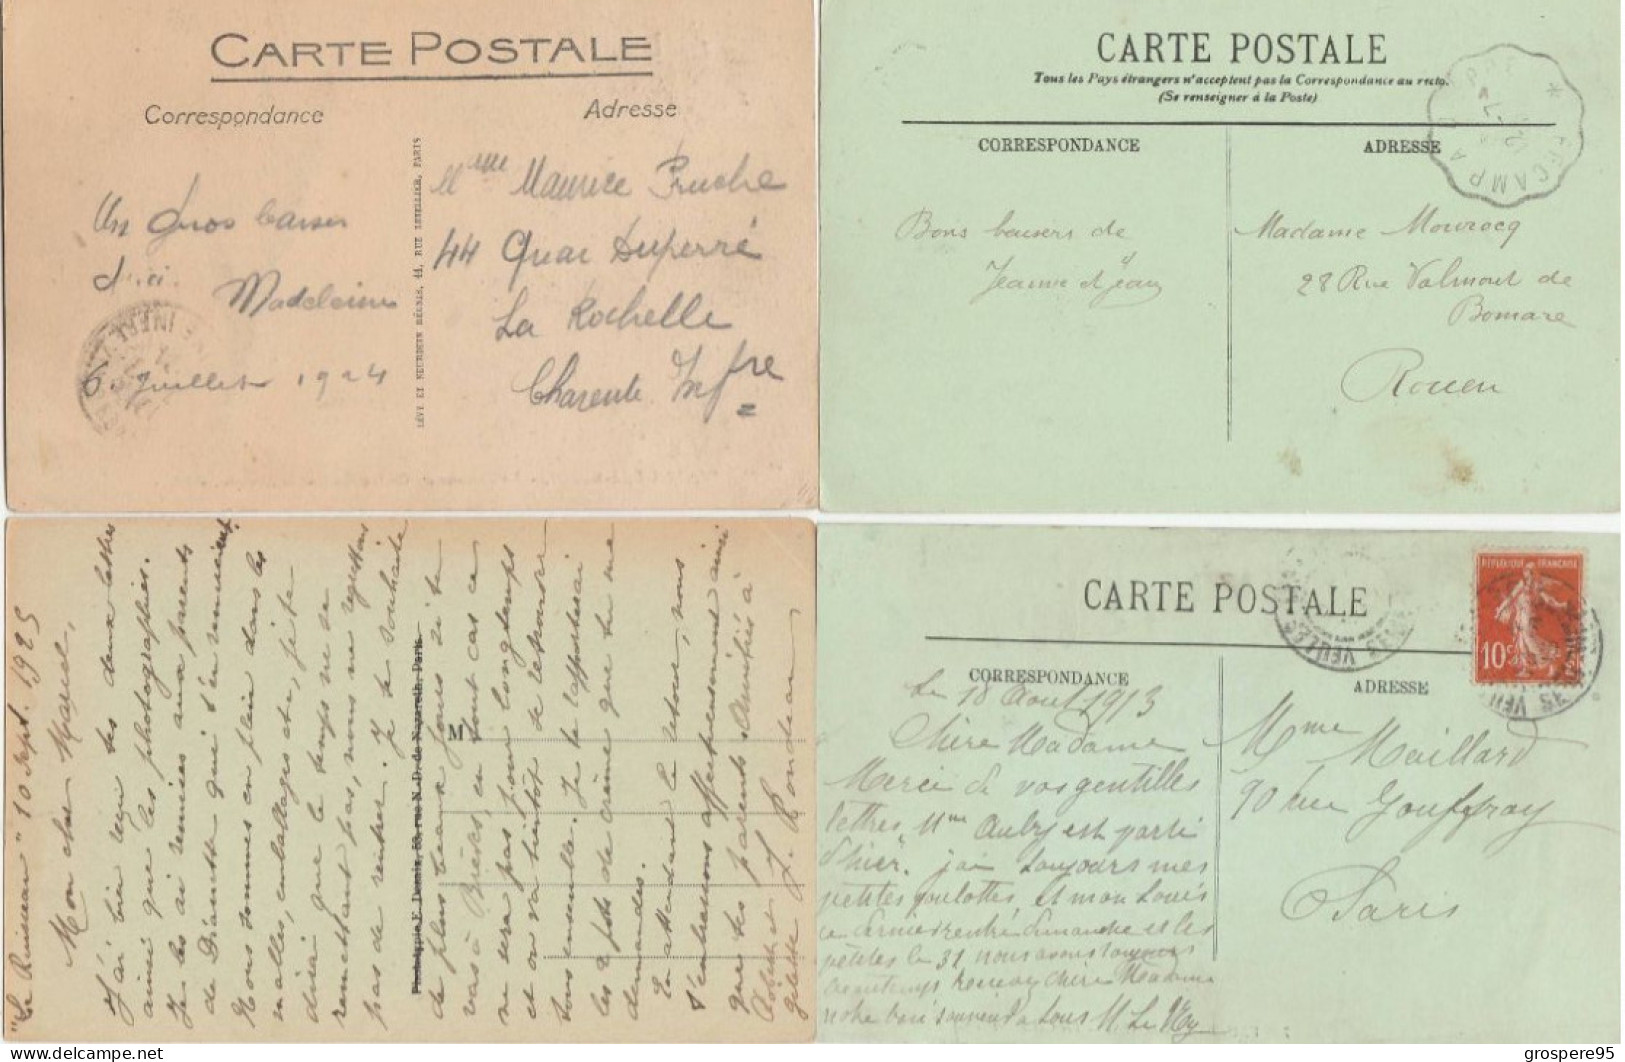 CARTE POSTALE
Correspondance
Adresse
Un gros baiser
d'ici.
Madeleine
6 Juillet 1924
LÉVY ET NEURDEIN RÉUNIS, 44, RUE LETELLIER, PARIS
Mme Maurice Pruche
44 Quai Duperré
La Rochelle
Charente Infre
CARTE POSTALE
Tous les Pays étrangers n'acceptent pas la Correspondance au recto.
(Se renseigner à la Poste)
CORRESPONDANCE
ADRESSE
FECAMP A
Bons baisers de
Jeanne et Jean
Madame Mourocq
28 Rue Valmont de
Bomare
Rouen
"Le Ruisseau" 10 Sept. 1925
Mon cher Marcel,
J'ai bien reçu tes deux lettres
ainsi que les photographies.
Je les ai remises aux parents
de Pierrette qui t'en remercient.
Nous sommes en plein dans les
malles, emballages etc, je te
dirai que le temps ne se
remettant pas, nous ne regrettons
pas de rentrer. Je te souhaite
Phototypie E. Dumis, 53, rue N.-D. de Nazareth, Paris
de plus beaux jours si tu
vas à , en tout cas ce
ne sera pas pour longtemps
et on va bientôt se retrouver
tous ensemble. Je te rapporterai
les 2 pots de crème que tu me
demandes.
En attendant le retour, nous
t'embrassons affectueusement ainsi
que tes parents Amitiés à
Robert et
Gilette J. Rondeau
M
CARTE POSTALE
CORRESPONDANCE
ADRESSE
RÉPUBLIQUE FRANÇAISE
10c
VEULES
Le 18 Aout 1913
Chère Madame
Merci de vos gentilles
lettres, Mme Aubry est parti
d'hier, j'ai toujours mes
petites goulottes et mon Louis
rentré dimanche et les
petites le 31 nous avons toujours
beau temps Chère Madame
notre bon souvenir a tous M. Le
Mme Maillard
90 rue Jouffroy
Paris
delcampe.net
grospere95